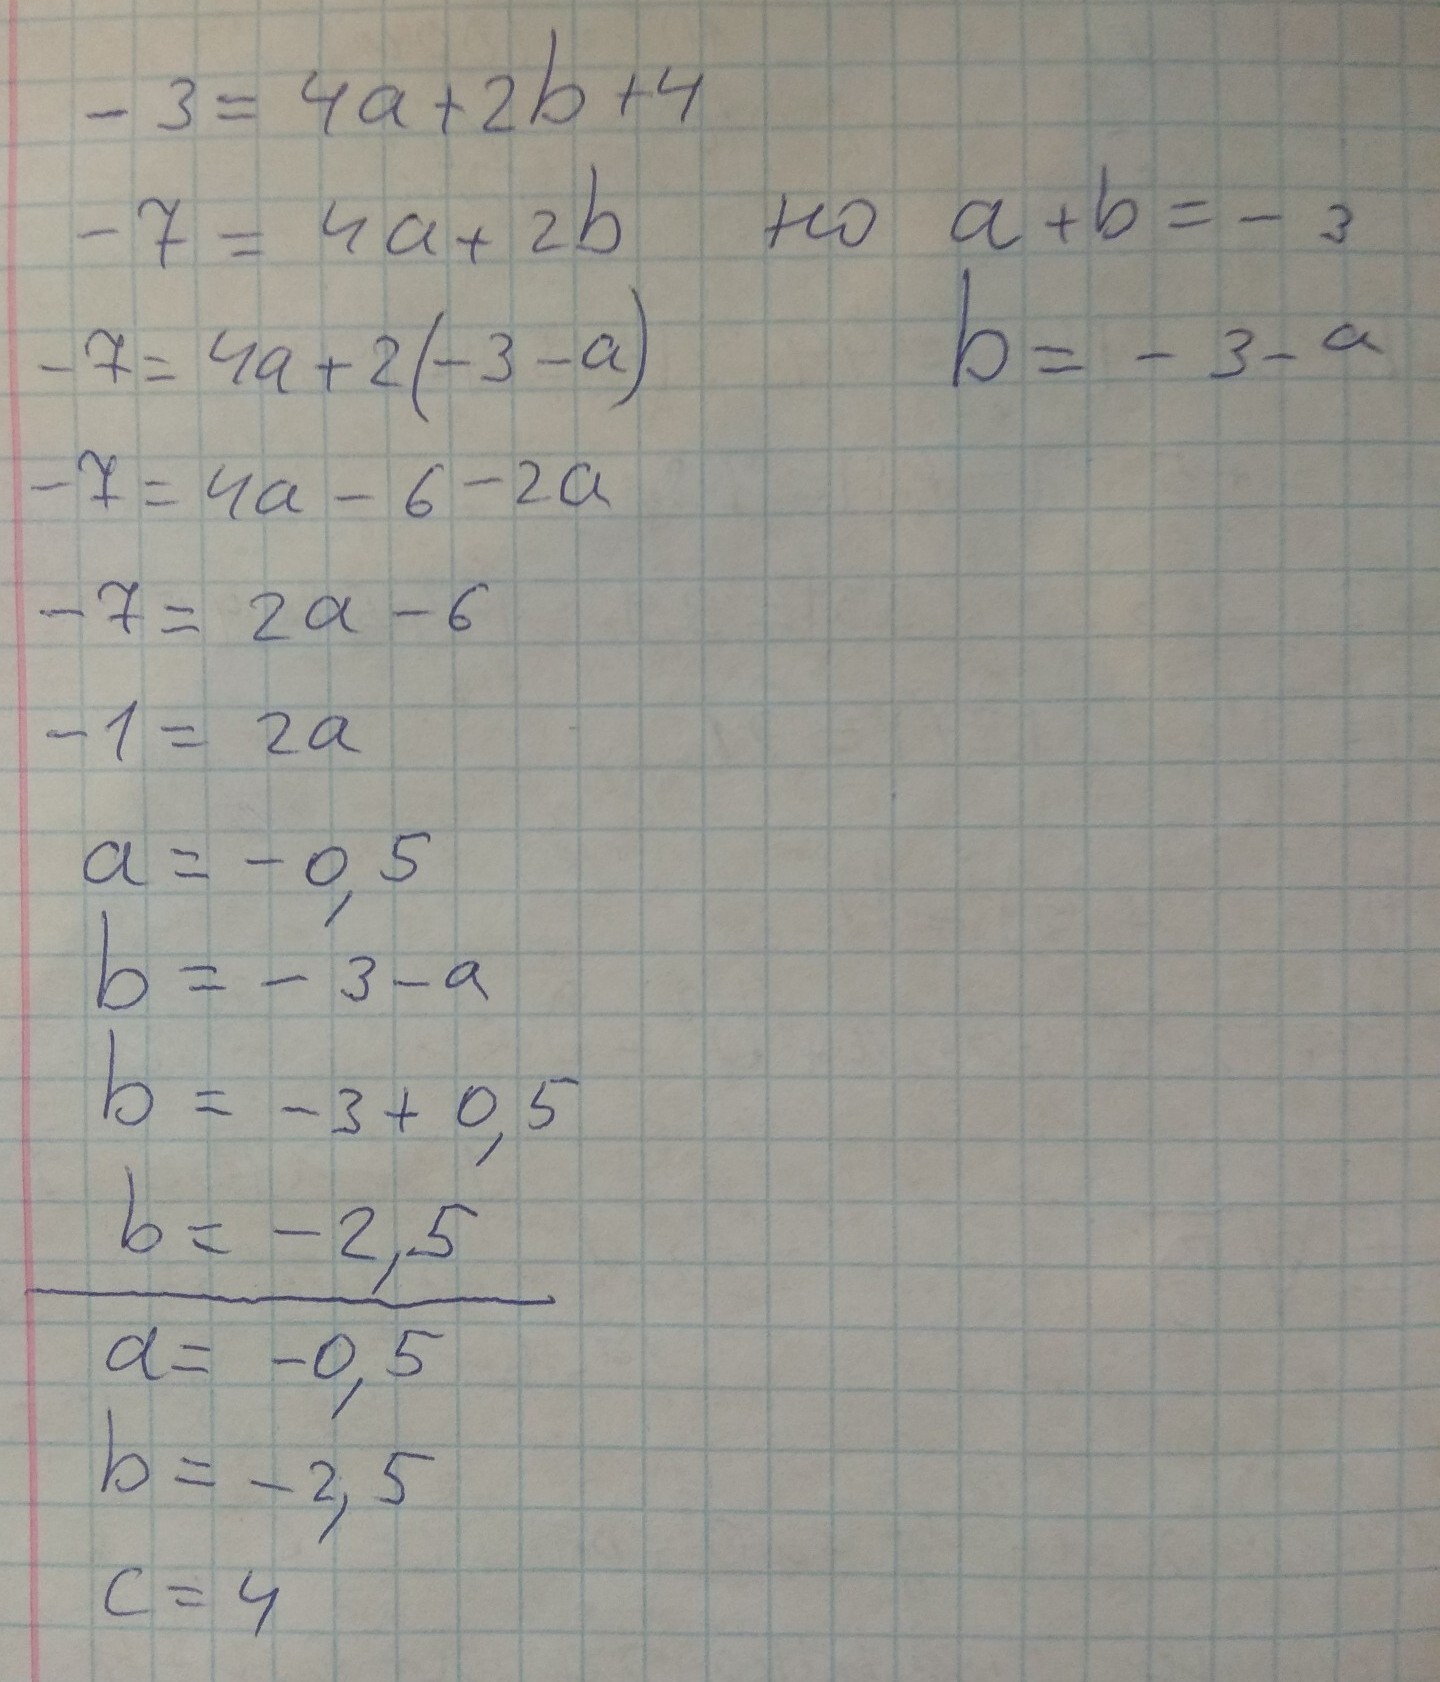 -3 = 4a+2b+4
-7 = 4a+2b но a+b=-3
-7=4a+2(-3-a) b=-3-a
-7=4a-6-2a
-7= 2a-6
-1= 2a
a=-0,5
b=-3-a
b=-3+0,5
b=-2,5
a=-0,5
b=-2,5
c=4